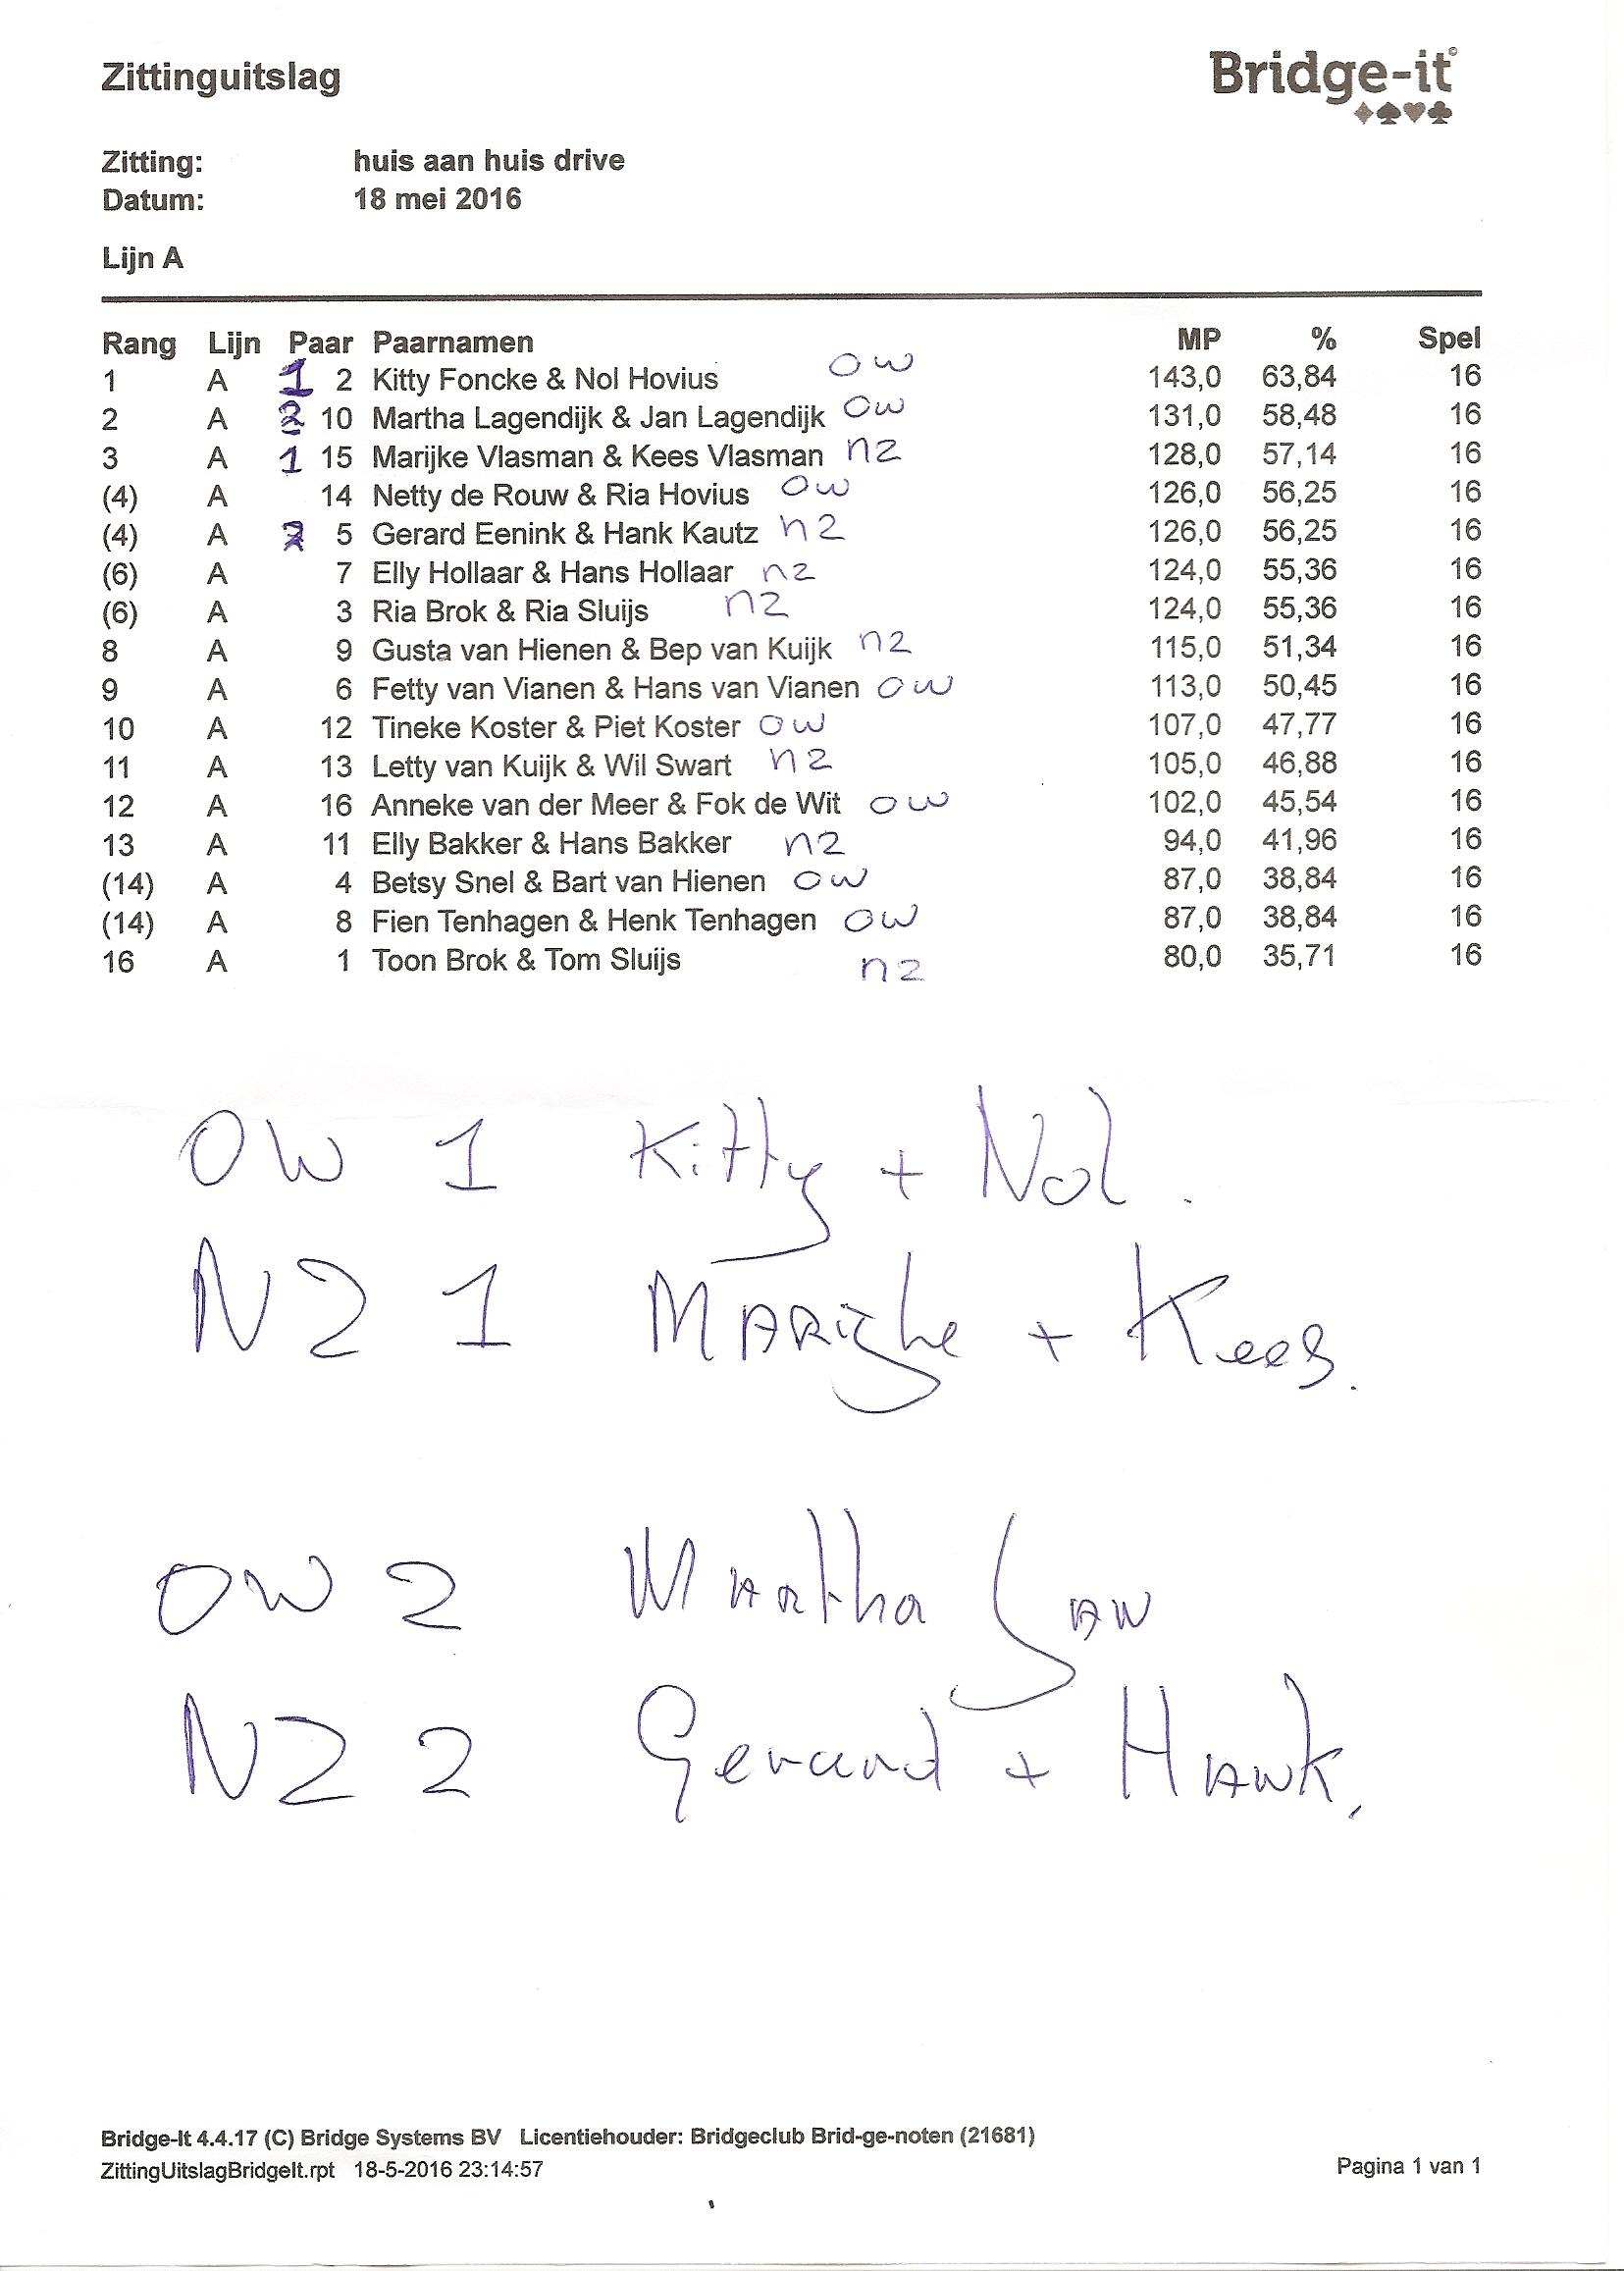 Zittinguitslag
Bridge-it©
Zitting: huis aan huis drive
Datum: 18 mei 2016
Lijn A
Rang Lijn Paar Paarnamen MP % Spel
1 A 1 2 Kitty Foncke & Nol Hovius OW 143,0 63,84 16
2 A 2 10 Martha Lagendijk & Jan Lagendijk OW 131,0 58,48 16
3 A 1 15 Marijke Vlasman & Kees Vlasman nz 128,0 57,14 16
(4) A 14 Netty de Rouw & Ria Hovius OW 126,0 56,25 16
(4) A 2 5 Gerard Eenink & Hank Kautz nz 126,0 56,25 16
(6) A 7 Elly Hollaar & Hans Hollaar nz 124,0 55,36 16
(6) A 3 Ria Brok & Ria Sluijs nz 124,0 55,36 16
8 A 9 Gusta van Hienen & Bep van Kuijk nz 115,0 51,34 16
9 A 6 Fetty van Vianen & Hans van Vianen OW 113,0 50,45 16
10 A 12 Tineke Koster & Piet Koster OW 107,0 47,77 16
11 A 13 Letty van Kuijk & Wil Swart nz 105,0 46,88 16
12 A 16 Anneke van der Meer & Fok de Wit OW 102,0 45,54 16
13 A 11 Elly Bakker & Hans Bakker nz 94,0 41,96 16
(14) A 4 Betsy Snel & Bart van Hienen OW 87,0 38,84 16
(14) A 8 Fien Tenhagen & Henk Tenhagen OW 87,0 38,84 16
16 A 1 Toon Brok & Tom Sluijs nz 80,0 35,71 16
OW 1 Kitty + Nol.
NZ 1 Marijke + Kees.
OW 2 Martha Jan
NZ 2 Gerard + Hank.
Bridge-It 4.4.17 (C) Bridge Systems BV Licentiehouder: Bridgeclub Brid-ge-noten (21681)
ZittingUitslagBridgeIt.rpt 18-5-2016 23:14:57 Pagina 1 van 1